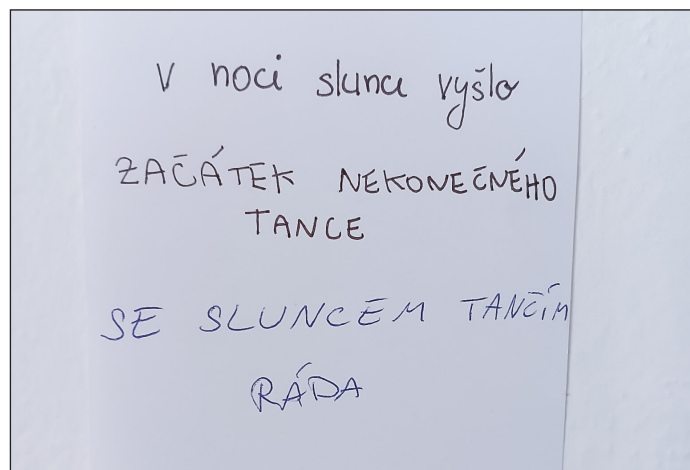 V noci slunce vyšlo
ZAČÁTEK NEKONEČNÉHO
TANCE
SE SLUNCEM TANČÍM
RÁDA